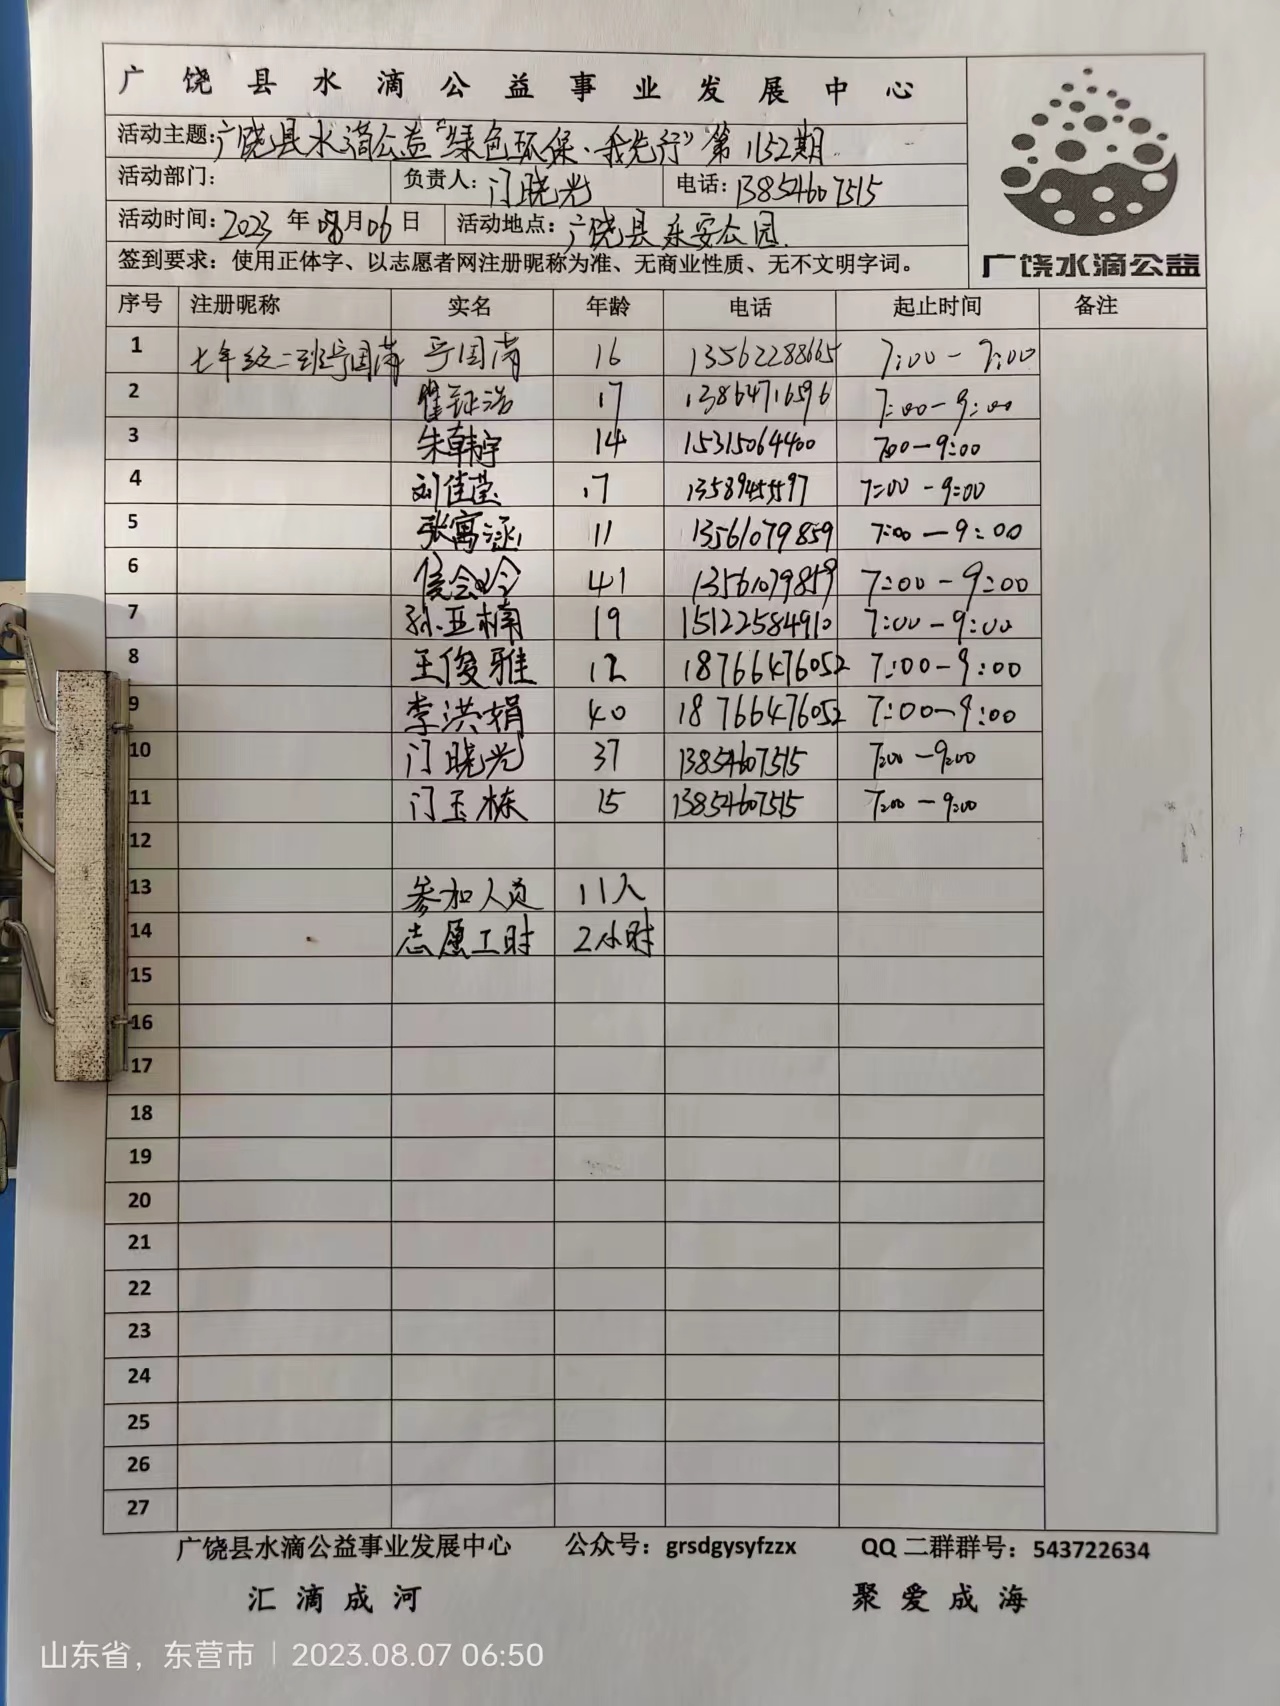 广饶县水滴公益事业发展中心
活动主题:广饶县水滴公益“绿色环保·我先行”第1152期
活动部门: 负责人:门晓光 电话:13854607515
活动时间:2023年08月06日 活动地点:广饶县乐安公园
签到要求:使用正体字、以志愿者网注册昵称为准、无商业性质、无不文明字词。
广饶水滴公益
序号 注册昵称 实名 年龄 电话 起止时间 备注
1 七年级二班 国 国 16 13562288665 7:00-9:00
2 崔钲浩 17 13864716596 7:00-9:00
3 朱韩宇 14 15315064400 7:00-9:00
4 刘佳莹 17 13589455597 7:00-9:00
5 张寓涵 11 13561079859 7:00-9:00
6 侯会玲 41 13561079859 7:00-9:00
7 孙亚楠 19 15122584910 7:00-9:00
8 王俊雅 12 18766476052 7:00-9:00
9 李洪娟 40 18766476052 7:00-9:00
10 门晓光 37 13854607515 7:00-9:00
11 门玉栋 15 13854607515 7:00-9:00
12
13 参加人员 11人
14 志愿工时 2小时
15
16
17
18
19
20
21
22
23
24
25
26
27
广饶县水滴公益事业发展中心 公众号:grsdgysyfzzx QQ二群群号:543722634
汇滴成河 聚爱成海
山东省,东营市 | 2023.08.07 06:50